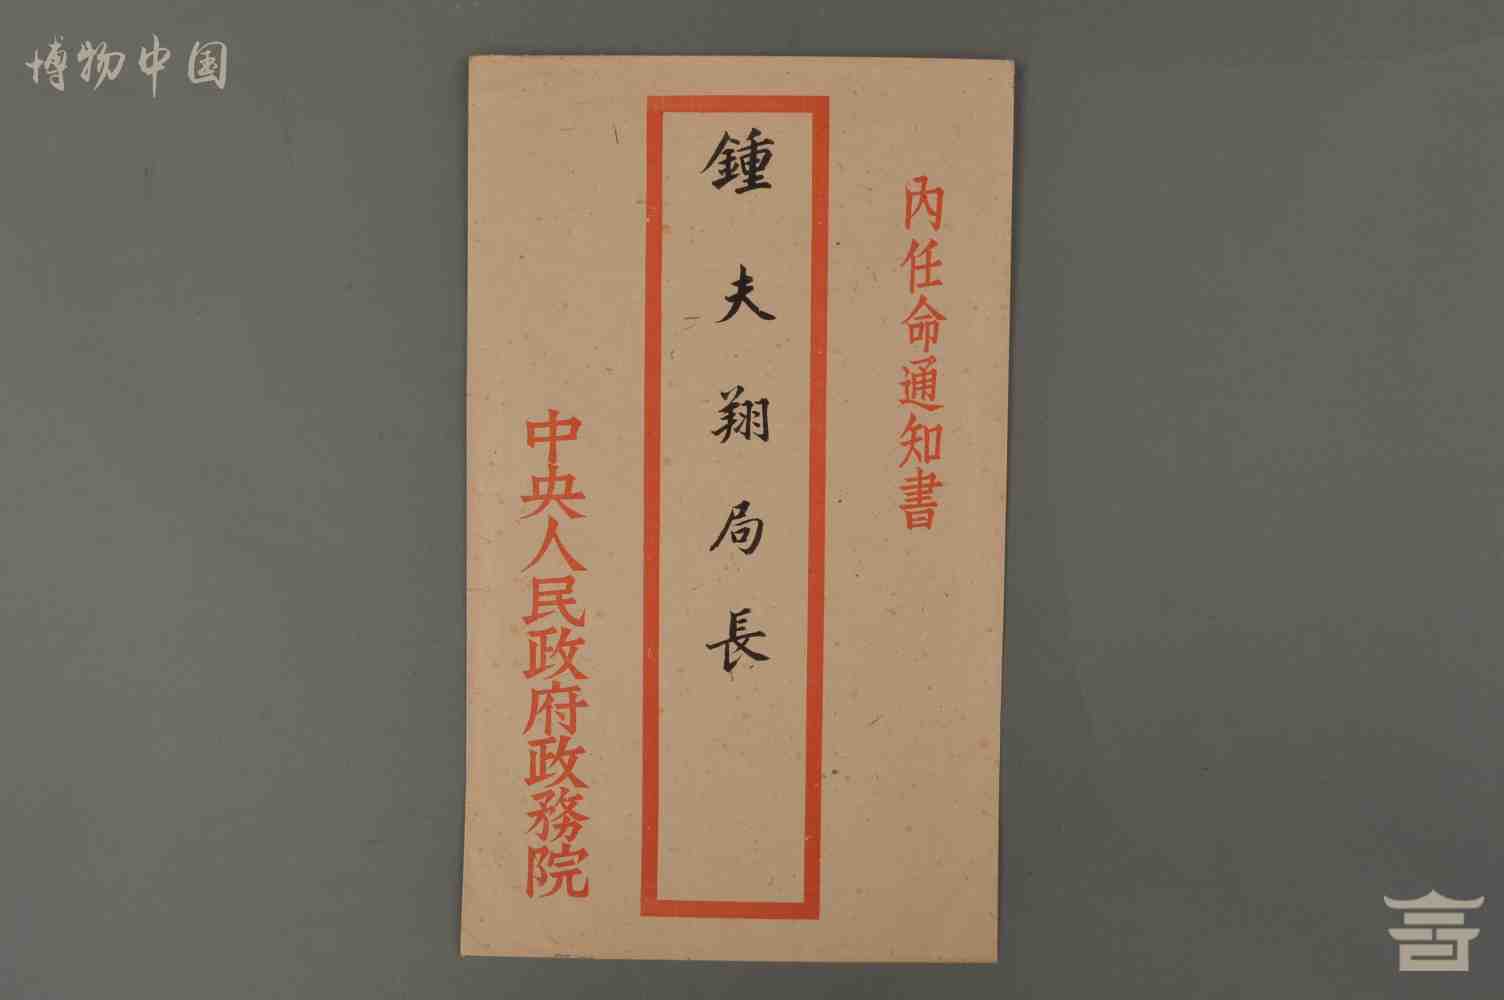 博物中国
內任命通知書
鍾夫翔局長
中央人民政府政務院